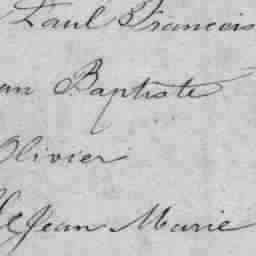 Paul Francois
an Baptiste
Olivier
Jean Marie